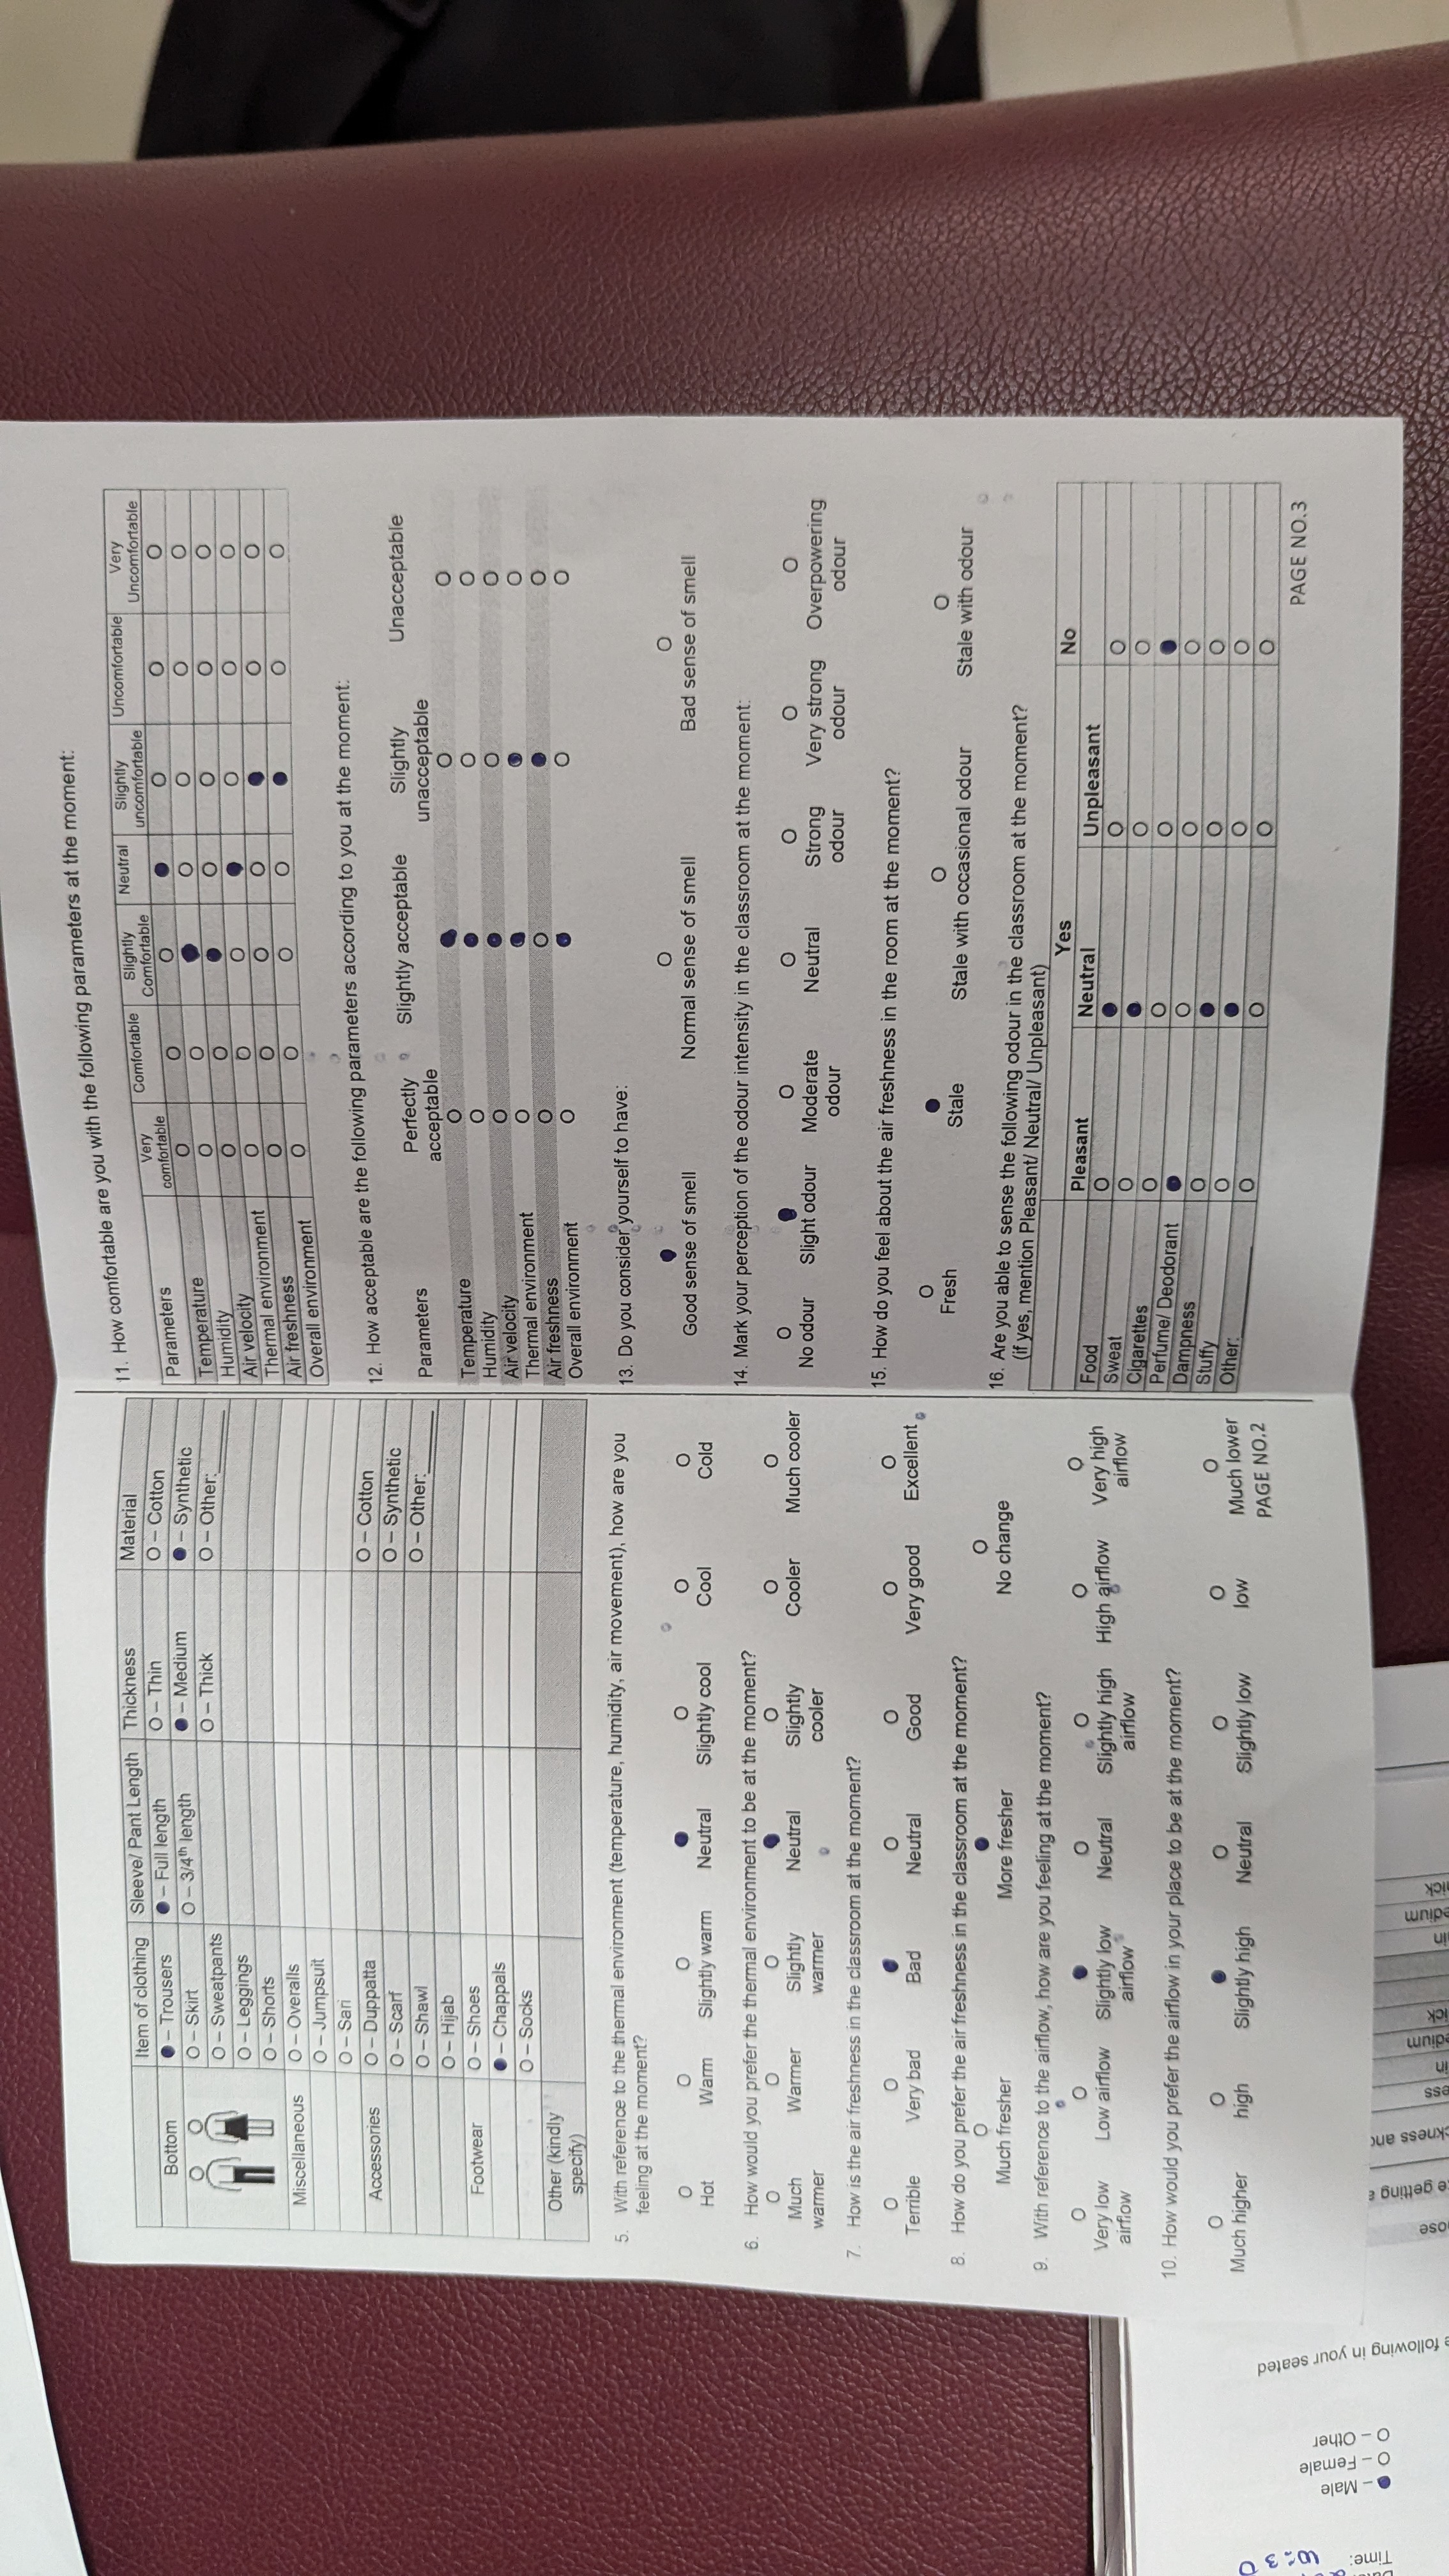 Item of clothing Sleeve/ Pant Length Thickness Material
Bottom ● – Trousers ● – Full length O – Thin O – Cotton
O – Skirt O – 3/4th length ● – Medium ● – Synthetic
O – Sweatpants O – Thick O – Other:____
O – Leggings
O – Shorts
Miscellaneous O – Overalls
O – Jumpsuit
O – Sari
Accessories O – Duppatta O – Cotton
O – Scarf O – Synthetic
O – Shawl O – Other:____
O – Hijab
Footwear O – Shoes
● – Chappals
O – Socks
Other (kindly
specify)
5. With reference to the thermal environment (temperature, humidity, air movement), how are you
feeling at the moment?
O O O ● O O O
Hot Warm Slightly warm Neutral Slightly cool Cool Cold
6. How would you prefer the thermal environment to be at the moment?
O O O ● O O O
Much Warmer Slightly Neutral Slightly Cooler Much cooler
warmer warmer cooler
7. How is the air freshness in the classroom at the moment?
O O ● O O O O
Terrible Very bad Bad Neutral Good Very good Excellent
8. How do you prefer the air freshness in the classroom at the moment?
O ● O
Much fresher More fresher No change
9. With reference to the airflow, how are you feeling at the moment?
O O ● O O O O
Very low Low airflow Slightly low Neutral Slightly high High airflow Very high
airflow airflow airflow airflow
10. How would you prefer the airflow in your place to be at the moment?
O O ● O O O O
Much higher high Slightly high Neutral Slightly low low Much lower
PAGE NO.2
11. How comfortable are you with the following parameters at the moment:
Parameters Very Comfortable Slightly Neutral Slightly Uncomfortable Very
comfortable Comfortable uncomfortable Uncomfortable
Temperature O O O ● O O O
Humidity O O ● O O O O
Air velocity O O ● O O O O
Thermal environment O O O ● O O O
Air freshness O O O O ● O O
Overall environment O O O O ● O O
12. How acceptable are the following parameters according to you at the moment:
Parameters Perfectly Slightly acceptable Slightly Unacceptable
acceptable unacceptable
Temperature O ● O O
Humidity O ● O O
Air velocity O ● O O
Thermal environment O ● ● O
Air freshness O O ● O
Overall environment O ● O O
13. Do you consider yourself to have:
● O O
Good sense of smell Normal sense of smell Bad sense of smell
14. Mark your perception of the odour intensity in the classroom at the moment:
O ● O O O O O
No odour Slight odour Moderate Neutral Strong Very strong Overpowering
odour odour odour odour
15. How do you feel about the air freshness in the room at the moment?
O ● O O
Fresh Stale Stale with occasional odour Stale with odour
16. Are you able to sense the following odour in the classroom at the moment?
(if yes, mention Pleasant/ Neutral/ Unpleasant)
Yes No
Pleasant Neutral Unpleasant
Food O ● O O
Sweat O ● O O
Cigarettes O O O ●
Perfume/ Deodorant ● O O O
Dampness O ● O O
Stuffy O ● O O
Other:____ O O O O
PAGE NO.3
Time:
● – Male
O – Female
O – Other
following in your seated